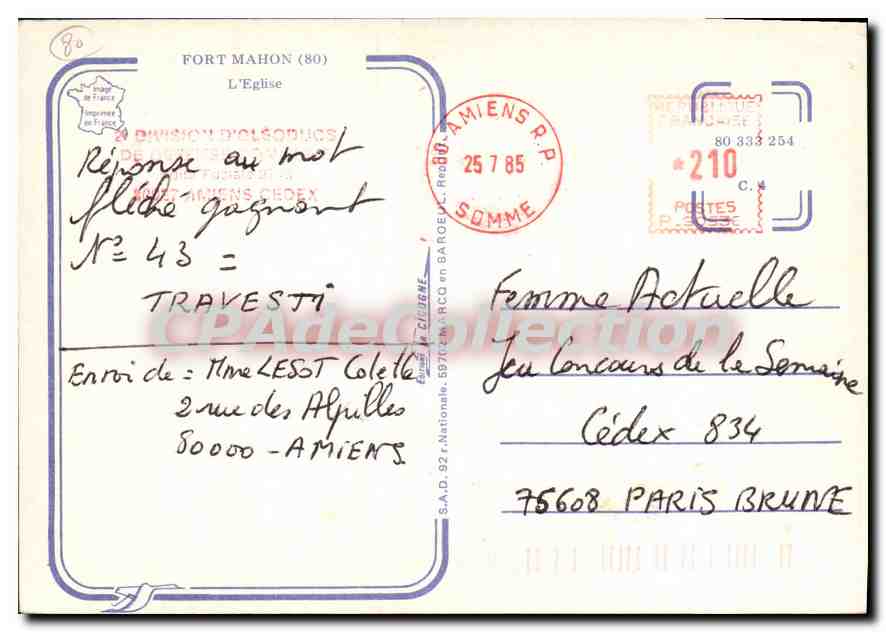 80
FORT MAHON (80)
L'Eglise
Image
de France
Imprimée
en France
DIVISION D'OLÉODUCS
AMIENS CEDEX
Réponse au mot
fléché gagnant
N° 43 =
TRAVESTI
Envoi de = Mme LESOT Colette
2 rue des Alpilles
80000 - AMIENS
Editions LA CIGOGNE
S.A.D. 92 r. Nationale. 59702 MARCQ en BAROEUL.
80 AMIENS R.P.
25 7 85
SOMME
REPUBLIQUE
FRANCAISE
80 333 254
*210
C. 4
POSTES
Femme Actuelle
Jeu Concours de la Semaine
Cédex 834
75608 PARIS BRUNE
CPAdeCollection